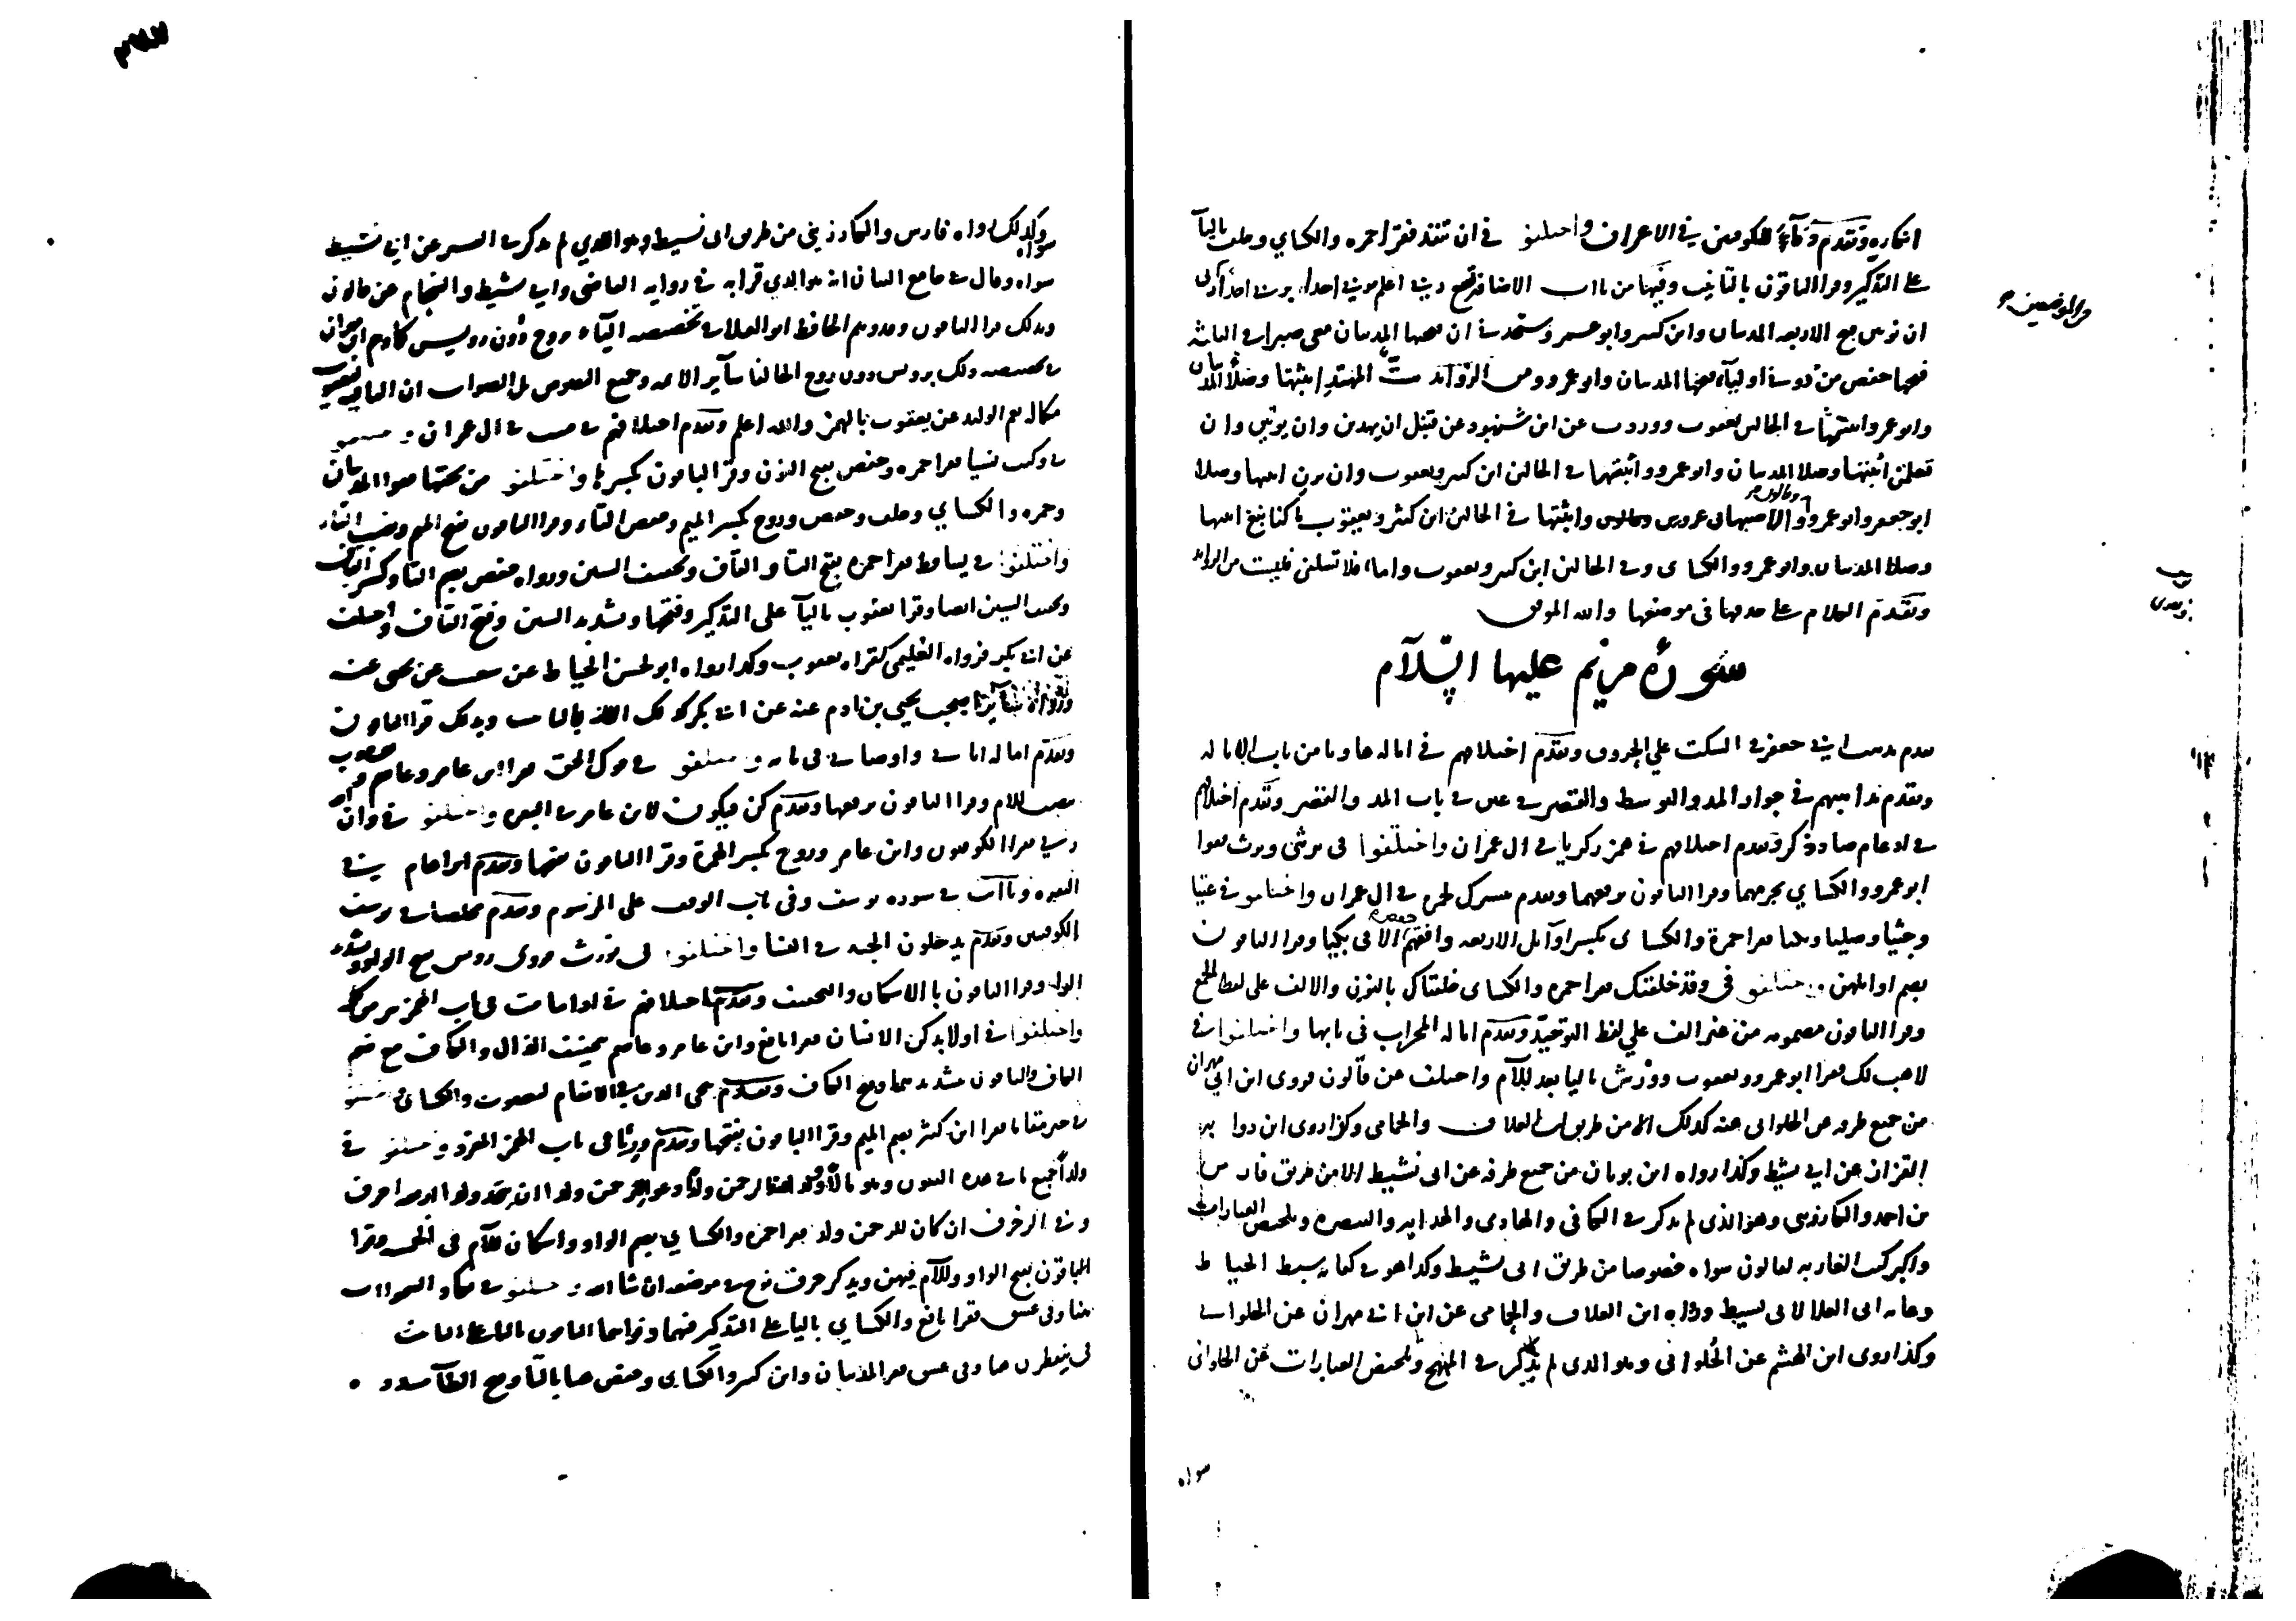 انكاره وتقدم دكاء للكوفيين في الاعراف واختلفوا في ان تنفد فقرا حمزه والكساي وخلف باليا
على التذكير وقرا الباقون بالتانيث وفيها من ياات الاضافه تسع ربي اعلم بربي احدا بربي احدا ربي
ان يوتين فتح الاربعه المدنيان وابن كثير وابو عمرو ستجدني ان فتحها المدنيان معي صبرا في الثلاثه
فتحها حفص من دوني اوليآء فتحها المدنيان وابو عمرو ومن الزوآئد ست المهتد اثبتها وصلا المدنيان
وابو عمرو واثبتها في الحالين يعقوب ووردت عن ابن شنبود عن قنبل ان يهدين وان يوتين وان
تعلمن أثبتها وصلا المدنيان وابو عمرو وأثبتها في الحالين ابن كثير ويعقوب وان ترن اثبتها وصلا
ابو جعفر وابو عمرو وقالون والاصبهاني عن ورش واثبتها في الحالين ابن كثير ويعقوب ما كنا نبغ اثبتها
وصلا المدنيان وابو عمرو والكساى وفي الحالين ابن كثير ويعقوب واما فلا تسلني فليست من الزوائد
وتقدم الكلام على حذفها في موضعها والله الموفق
سورة مريم عليها السلام
تقدم مذهب ابي جعفر في السكت علي الحروف وتقدم اختلافهم في اماله ها ويا من باب الاماله
وتقدم مذاهبهم في جواز المد والتوسط والقصر في عين في باب المد والقصر وتقدم اختلافهم
في ادغام صاد ذكر وتقدم اختلافهم في همز زكريا في ال عمران واختلفوا في يرثني ويرث فقرا
ابو عمرو والكساي بجزمهما وقرا الباقون برفعهما وتقدم يبشرك لحمزه في ال عمران واختلفوا في عتيا
وجثيا وصليا وبكيا فقرا حمزة والكساى بكسر اوآئل الاربعه وافقهم حفص الا في بكيا وقرا الباقون
بضم اوائلهن واختلفوا في وقد خلقتك فقرا حمزه والكساى خلقناك بالنون والالف على لفظ الجمع
وقرا الباقون بالتا مضمومه من غير الف علي لفظ التوحيد وتقدم اماله المحراب في بابها واختلفوا في
لاهب لك فقرا ابو عمرو ويعقوب وورش باليا بعد اللآم واختلف عن قالون فروى ابن ابي مهران
من جميع طرقه عن الحلواني عنه كذلك الا من طريق ابن العلاف والحمامى وكذا روى ابن ذوابه
القزاز عن ابي نشيط وكذا رواه ابن بويان من جميع طرقه عن ابي نشيط الا من طريق فارس
بن احمد والكارزيني وهو الذي لم يذكر في الكافي والهادى والهدايه والتبصره وتلخيص العبارات
واكثر كتب المغاربه لقالون سواه خصوصا من طريق ابي نشيط وكذا هو في كفايه سبط الخياط
وغايه ابي العلا لابي نشيط ورواه ابن العلاف والحمامى عن ابن ابي مهران عن الحلواني
وكذا روى ابن الهيثم عن الحلواني وهو الذى لم يذكر في المبهج وتلخيص العبارات عن الحلوانى
سواه
وكذلك رواه فارس والكارزيني من طريق ابي نشيط وهو الذي لم يذكر في التيسير عن ابي نشيط
سواه وقال في جامع البيان انه هو الذي قرا به في روايه القاضى وابي نشيط والشحام عن قالون
وبذلك قرا الباقون ووهم الحافظ ابو العلا في تخصيصه اليآء بروح دون رويس كما وهم ابن مهران
في تخصيصه ذلك برويس دون روح فخالفا سآئر الائمه وجميع النصوص بل الصواب ان اليا فيه ليعقوب
بكماله نعم الوليد عن يعقوب بالهمز والله اعلم وتقدم اختلافهم في مت في ال عمران واختلفوا
في وكنت نسيا فقرا حمزه وحفص بفتح النون وقرا الباقون بكسرها واختلفوا من تحتها فقرا المدنيان
وحمزه والكساي وخلف وحفص وروح بكسر الميم وخفض التاء وقرا الباقون بفتح الميم ونصب التاء
واختلفوا في تساقط فقرا حمزه بفتح التا والقاف وتخفيف السين ورواه حفص بضم التا وكسر القاف
وتخفيف السين ايضا وقرا يعقوب باليآ على التذكير وفتحها وتشديد السين وفتح القاف واختلف
عن ابي بكر فرواه العليمي كقراه يعقوب وكذا رواه ابو الحسن الخياط عن شعيب عن يحيى عنه
ورواه سآئر اصحاب يحيى بن ادم عنه عن ابي بكر كذلك الا انه بالتانيث وبذلك قرا الباقون
وتقدم اماله اتاني واوصاني في بابه واختلفوا في قول الحق فقرا ابن عامر وعاصم ويعقوب
بنصب اللام وقرا الباقون برفعها وتقدم كن فيكون لابن عامر في البقره واختلفوا في وان
ربي فقرا الكوفيون وابن عامر وروح بكسر الهمزة وقرا الباقون بفتحها وتقدم ابراهام في
البقره ويا ابت في سوره يوسف وفي باب الوقف على المرسوم وتقدم مخلصا في يوسف
للكوفيين وتقدم يدخلون الجنه في النسا واختلفوا في نورث فروى رويس بفتح الواو وتشديد
الرا وقرا الباقون بالاسكان والتخفيف وتقدم اختلافهم في اءذا ما مت في باب الهمزتين من كلمه
واختلفوا في اولا يذكر الانسان فقرا نافع وابن عامر وعاصم بتخفيف الذال والكاف مع ضم
الكاف والباقون بتشديدهما وفتح الكاف وتقدم ننجي الذين في الانعام ليعقوب والكسائ واختلفوا
في خير مقاما فقرا ابن كثير بضم الميم وقرا الباقون بفتحها وتقدم وريا في باب الهمز المفرد واختلفوا في
ولد اجميع ما في هذه السوره وهو مالا وولدا الرحمن ولدا دعوا للرحمن ولدا ان يتخذ ولدا اربعه احرف
وفي الزخرف ان كان للرحمن ولد فقرا حمزه والكساي بضم الواو واسكان اللآم في الخمسه وقرا
الباقون بفتح الواو واللآم فيهن ويذكر حرف نوح في موضعه ان شا الله واختلفوا في تكاد السموات
هنا وفي عسق فقرا نافع والكساي باليا على التذكير فيهما وقراهما الباقون بالتا على التانيث
في يتفطرن هنا وفي عسق فقرا المدنيان وابن كثير والكساى وحفص هنا بالتا وفتح الطآ مشدده